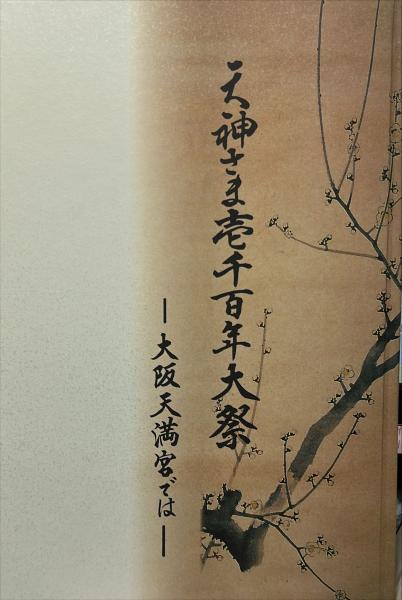 天神さま壱千百年大祭
―大阪天満宮では―